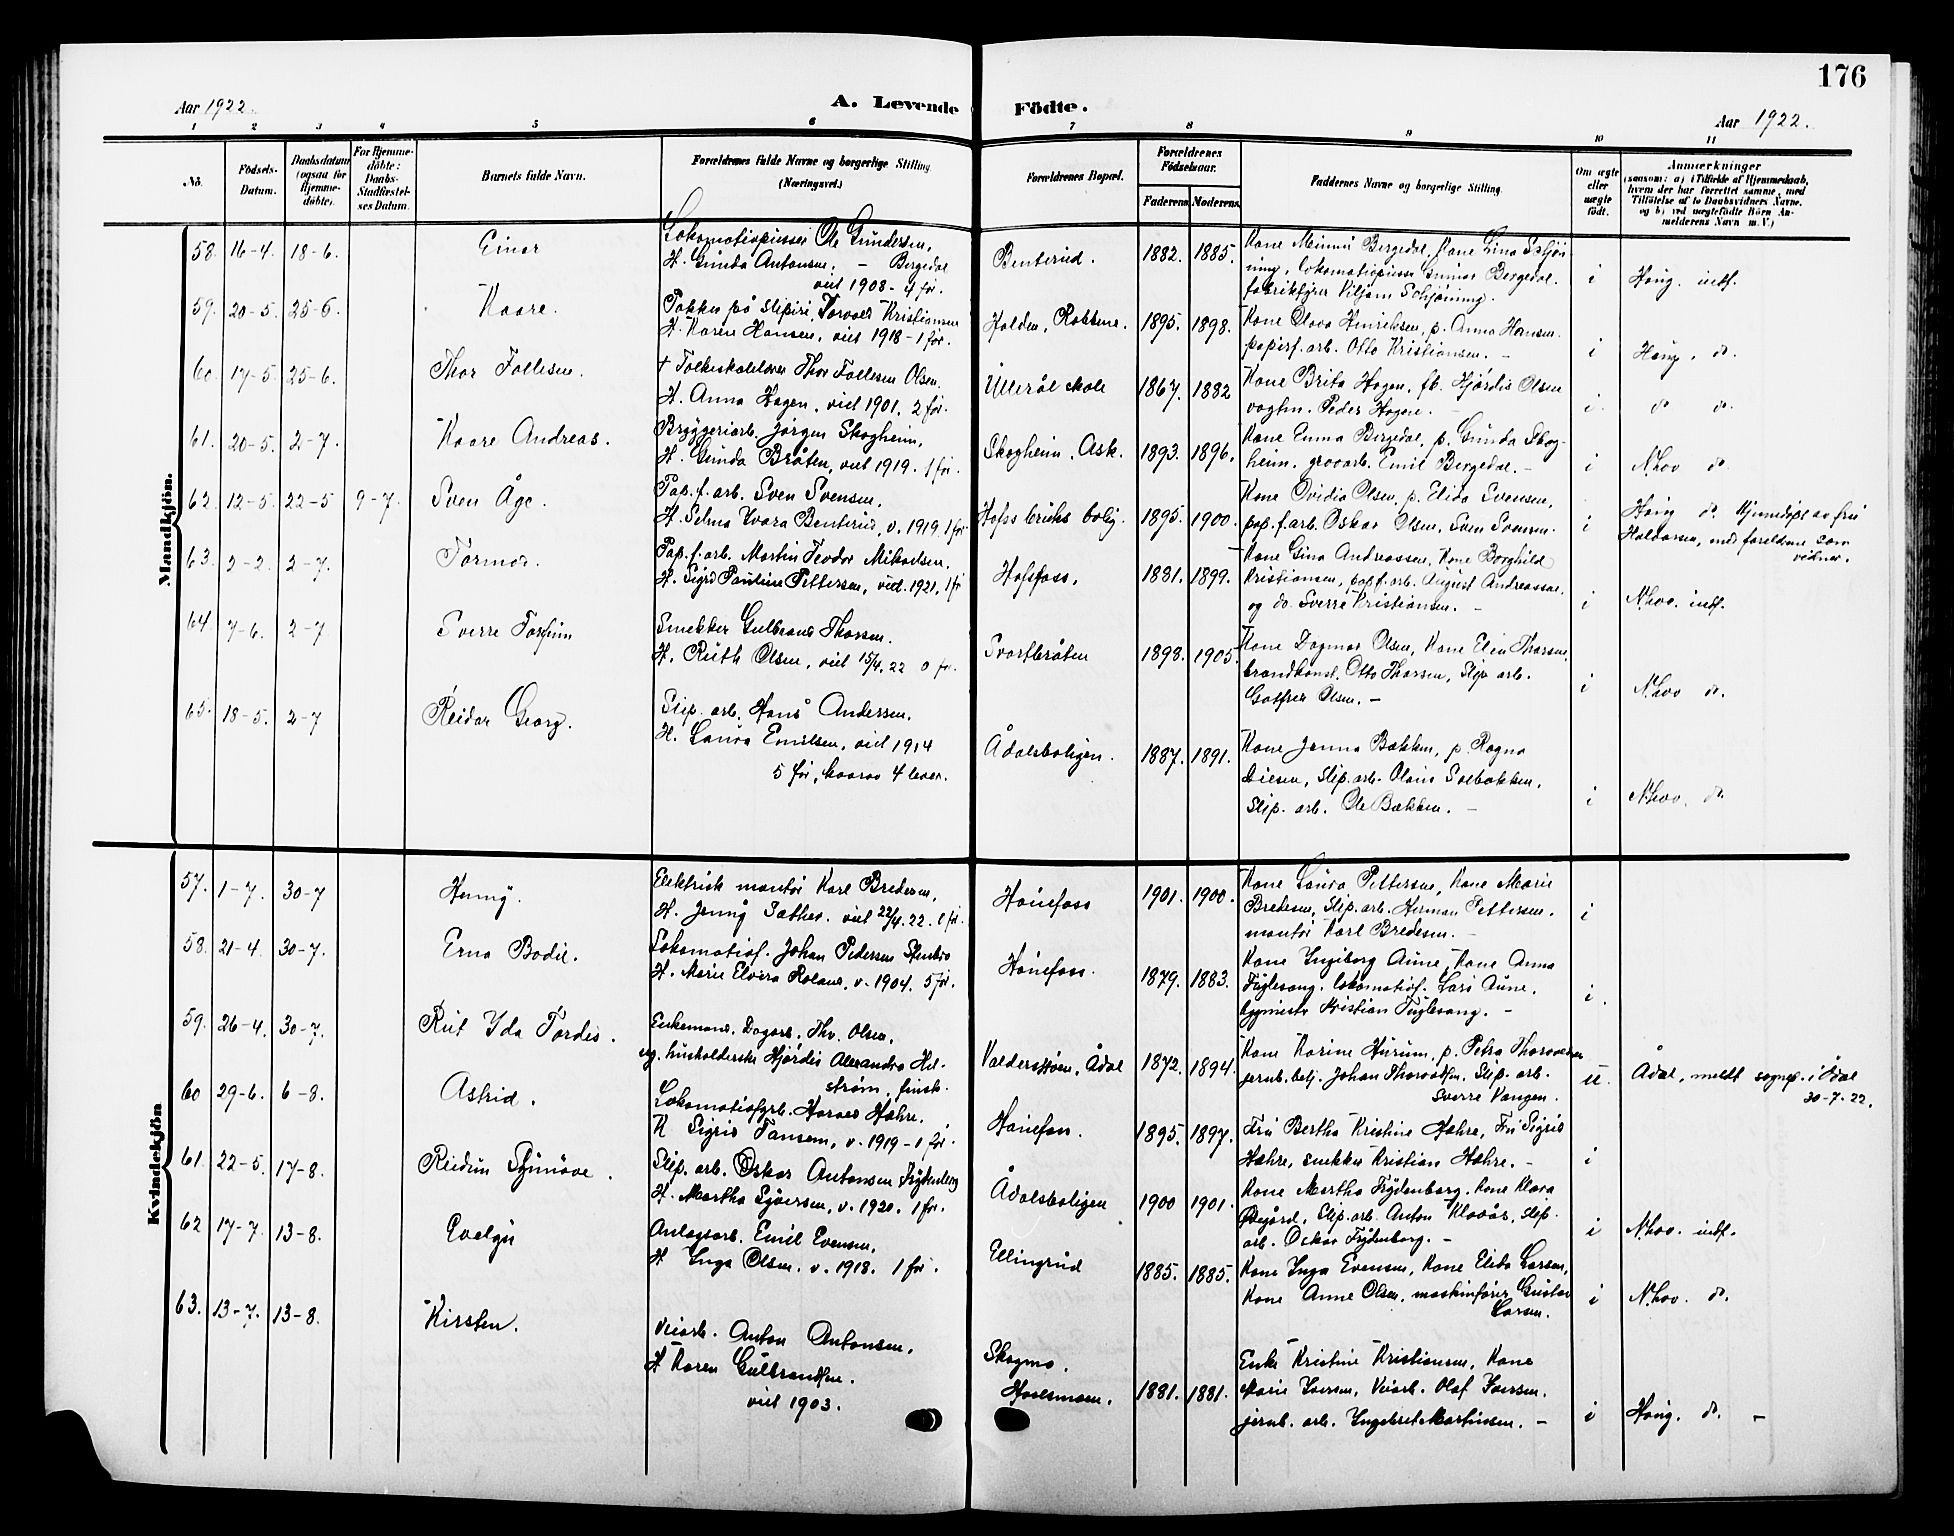 176
Aar 1922.
A. Levende Födte.
Aar 1922.
1 2 3 4 5 6 7 8 9 10 11
No. Födsels-Datum. Daabsdatum (ogsaa for Hjemmedöbte). For Hjemmedöbte: Daabs-Stadfæstelses Datum. Barnets fulde Navn. Forældrenes fulde Navne og borgerlige Stilling (Næringsvei.) Forældrenes Bopæl. Forældrenes Födselsaar. Faderens Moderens. Faddernes Navne og borgerlige Stilling. Om ægte eller uægte födt. Anmærkninger (saasom: a) i Tilfælde af Hjemmedaab, hvem der har forrettet samme, med Tilföielse af to Daabsvidners Navne. og b) ved uægtefödte Börn Anmelderens Navn m. V.)
Mandkjön.
58. 16-4. 18-6. Einar
Lokomotivpusser Ole Gundersen,
H. Gunda Antonsen. – Bergedal
viet 1908 - 4 før.
Benterud. 1882. 1885.
Kone Minni Bergedal, Kone Gina Schjön-
ning, lokomotivpusser Gunnar Bergedal.
fabrikfyrer Viljam Schjönning.
i Haug. indf.
59. 20-5. 25-6. Kaare.
Pakker på sliperi, Torvald Kristiansen
H. Karen Hansen, viet 1918 - 1 før.
Halden, 1895. 1898.
Kone Olava Henriksen, p. Anna Hansen.
papirf. arb. Otto Kristiansen. –
i Haug. do.
60. 17-5. 25-6. Thor Follesen.
+ Folkeskolelærer Thor Follesen Olsen.
H. Anna Hagen, viet 1901. 2 før.
Ullerål skole 1867. 1882
Kone Brita Hagen, fk. Hjördis Olsen
vogtm. Peder Hagen. –
i. do do.
61. 20-5. 2-7. Kaare Andreas.
Bryggeriarb. Jörgen Skogheim,
H. Gunda Bråten, viet 1919. 1 før.
Skogheim, Ask. 1893. 1896.
Kone Emma Bergedal, p. Gunda Skog-
heim. gravarb. Emil Bergedal. –
i N.hov do.
62. 12-5. 22-5 9-7. Sven Åge.
Pap. f. arb. Sven Svensen,
H. Selma Ivara Benterud, v. 1919. 1 før
Hofsbruks bolig. 1895. 1900.
Kone Ovidia Olsen, p. Elida Svensen,
pap. f. arb. Oskar Olsen, Sven Svensen.
i Haug do. Hjemdöpt av fru
Haldorsen, med foreldrene som
vidner.
63. 2-2. 2-7. Tormod.
Pap. f. arb. Martin Teodor Mikalsen.
H. Sigrid Pauline Pettersen, vied. 1921. 1 før
Hofsfoss. 1881. 1899.
Kone Gina Andreassen, Kone Borghild
Kristiansen, pap. f. arb. August Andreassen.
og do. Sverre Kristiansen. –
i N.hov. indf.
64 7-6. 2-7 Sverre Torfinn
Snekker Gulbrand Thorsen.
H. Ruth Olsen, viet 15/4. 22 0 før.
Svartbråten 1898. 1905.
Kone Dagmar Olsen, Kone Elin Thorsen.
brandkonst. Otto Thorsen, Slip. arb.
Gotfred Olsen. –
i N.hov do.
65. 18-5. 2-7 Reidar Georg.
Slip. arb. Hans Andersen.
H. Laura Emilsen, viet 1914
5 før, hvorav 4 lever.
Ådalsboligen. 1887. 1891.
Kone Jenna Bakken, p. Ragna
Slip. arb. Olaus Solbakken,
Slip. arb. Ole Bakken. –
i N.hov. do.
Kvindekjön
57. 1-7. 30-7 Henny.
Elektrisk montør Karl Bredesen,
H. Jenny Sather. viet 22/4. 22. 1 før.
Hønefoss 1901. 1900.
Kone Laura Pettersen, Kone Marie
Bredesen, Slip. arb. Herman Pettersen.
montør Karl Bredesen. –
i
58. 21-4. 30-7. Erna Bodil.
Lokomotivf. Johan Pedersen Stenbro
H. Marie Elvira Roland, v. 1904. 5 før.
Hønefoss. 1879. 1883.
Kone Ingeborg Aune, Kone Anna
Fuglesang. lokomotivf. Lars Aune.
bygmestr Kristian Fuglesang. –
i.
59. 26-4. 30-7. Rut Ida Tordis.
Enkemand. Dagarb. Thv. Olsen.
ug. husholderske Hjördis Alexandra Hel-
ström, finsk.
Ådal 1872. 1894.
Kone Karine Hurum, p. Petra Thorvaldsen
jernb. betj. Johan Thorvaldsen. Slip. arb.
Sverre Vangen.
u. Ådal, meldt sognep. i Ådal
30-7. 22.
60 29-6. 6-8. Astrid.
Lokomotivfyrb. Harald Hahre.
H. Sigrid Tansem, v. 1919 - 1 før.
Hønefoss. 1895. 1897.
Fru Bertha Kristine Hahre, Fru Sigrid
Hahre, snekker Kristian Hahre. –
i
61. 22-5. 17-8. Reidun Synnöve.
Slip. arb. Oskar Antonsen Frydenberg
H. Martha Syversen, v. 1920. 1 før.
Ådalsboligen 1900 1901.
Kone Martha Frydenberg. Kone Klara
Slip. arb. Anton Klavås, slip.
arb. Oskar Frydenberg. –
i N.hov. indf.
62 17-7. 13-8. Evelyn
Anlagsarb. Emil Evensen.
H. Inga Olsen. v. 1918. 1 før.
Ellingrud 1885. 1885.
Kone Inga Evensen, Kone Elida Larsen,
Kone Anne Olsen, maskinfører Gustav
Larsen.
i N.hov. do.
63. 13-7. 13-8. Kirsten.
Veiarb. Anton Antonsen,
H Karen Gulbrandsen.
viet 1903.
Skagmo.
1881. 1881.
Enke Kristine Kristiansen, Kone
Marie Iversen, Veiarb. Olaf Iversen.
jernb. arb. Ingebret Martinsen. –
i Haug. do. –